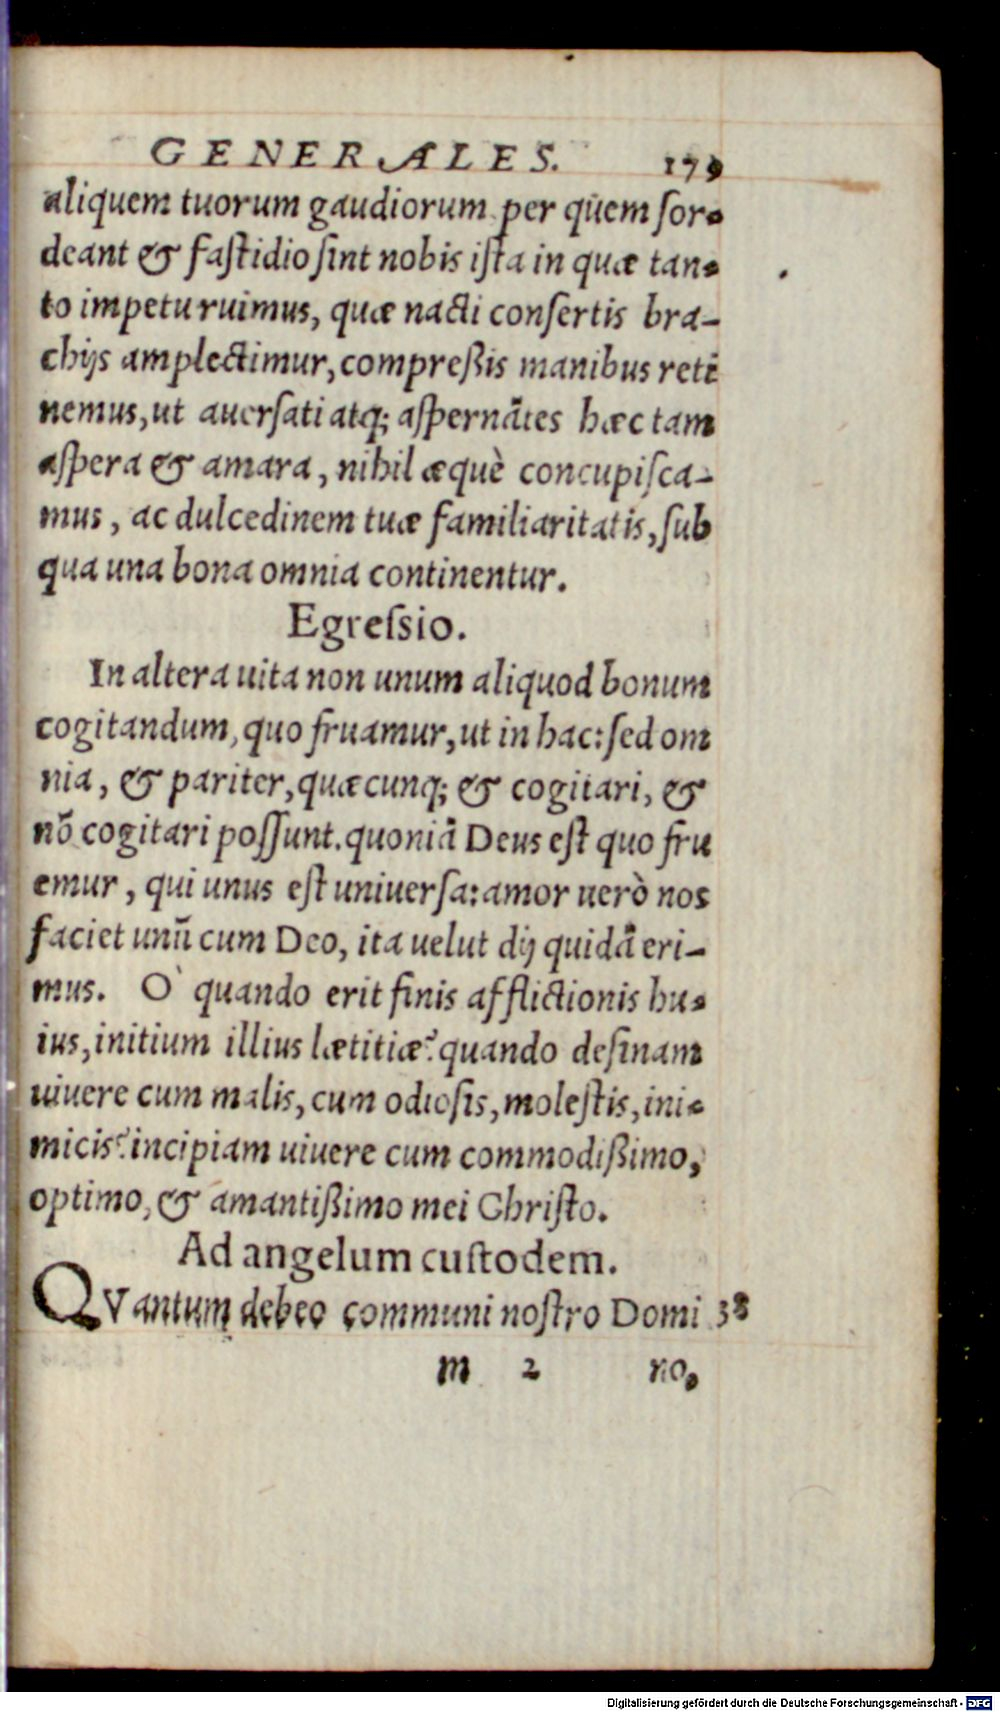 GENERALES. 179
aliquem tuorum gaudiorum per quem ſor-
deant & faſtidio ſint nobis iſta in quæ tan-
to impetu ruimus, quæ nacti conſertis bra-
chijs amplectimur, compreßis manibus reti
nemus, ut auerſati atq; aſpernātes hæc tam
aſpera & amara, nihil æquè concupiſca-
mus, ac dulcedinem tuæ familiaritatis, ſub
qua una bona omnia continentur.
Egreſsio.
In altera uita non unum aliquod bonum
cogitandum, quo fruamur, ut in hac: ſed om
nia, & pariter, quæcunq; & cogitari, &
nō cogitari poſſunt. quoniā Deus eſt quo fru
emur, qui unus eſt uniuerſa: amor uerò nos
faciet unū cum Deo, ita uelut dij quidā eri-
mus. Ò quando erit finis afflictionis hu-
ius, initium illius lætitiæ? quando deſinam
uiuere cum malis, cum odioſis, moleſtis, ini-
micis? incipiam uiuere cum commodißimo,
optimo, & amantißimo mei Chriſto.
Ad angelum cuſtodem.
QVantum debeo communi noſtro Domi 38
m 2 no,
Digitalisierung gefördert durch die Deutsche Forschungsgemeinschaft - DFG